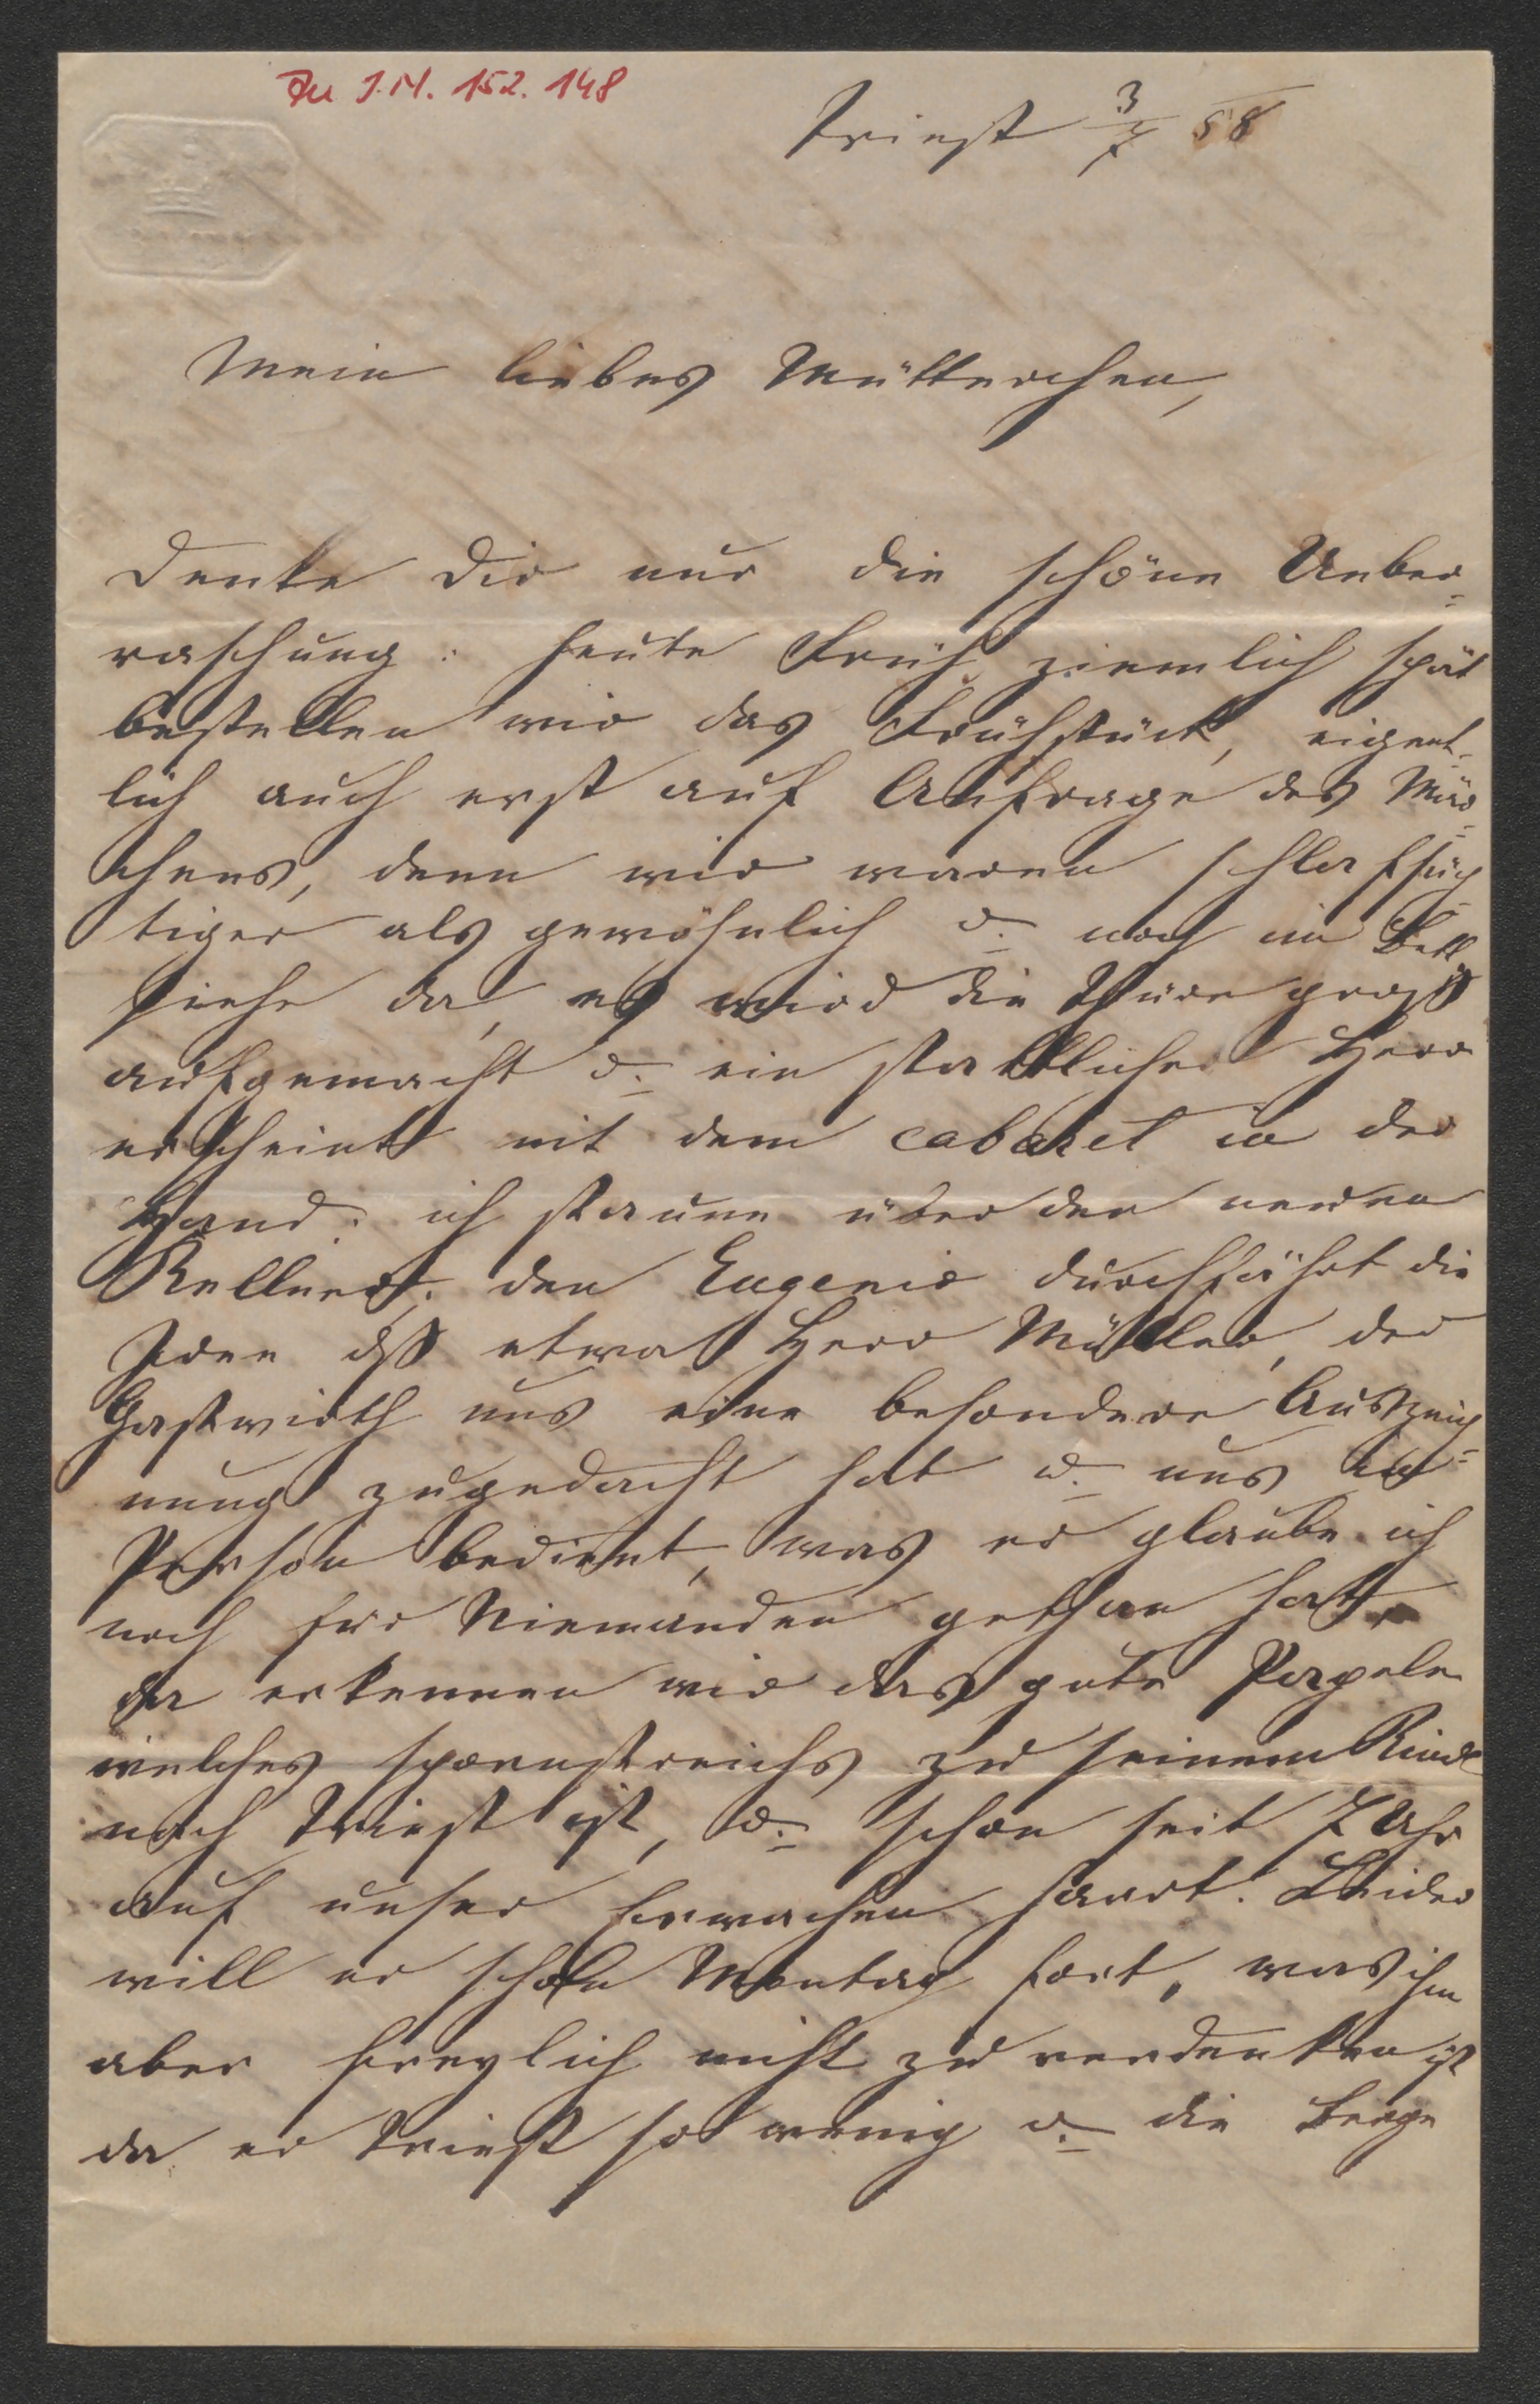 Zu I.N. 152.148
Triest 3/7 58
Mein liebes Mütterchen,
Denke Dir nur die schöne Ueber=
raschung: heute Früh ziemlich spät
bestellen wir das Frühstück, eigent=
lich auch erst auf Anfrage des Mäd=
chens, denn wir waren schlafsüch=
tiger als gewöhnlich u. noch im Bett
siehe da, es wird die Thüre groß
aufgemacht u. ein stattlicher Herr
erscheint mit dem cabaret in der
Hand: ich staune über den neuen
Kellner, den Eugenie durchfährt die
Idee dß etwa Herr Müller, der
Gastwirth uns eine besondere Auszeich=
nung zugedacht hat u. uns in
Person bedient, was er glaube ich
noch für Niemanden gethan hat,
da erkennen wir das gute Papele
welches spornstreichs zu seinem Kinde
nach Triest ist, u. schon seit 7 Uhr
auf unser Erwachen harrt. Leider
will er schon Montag fort, was ihm
aber freylich nicht zu verdenken ist
da er Triest so wenig u. die Berge